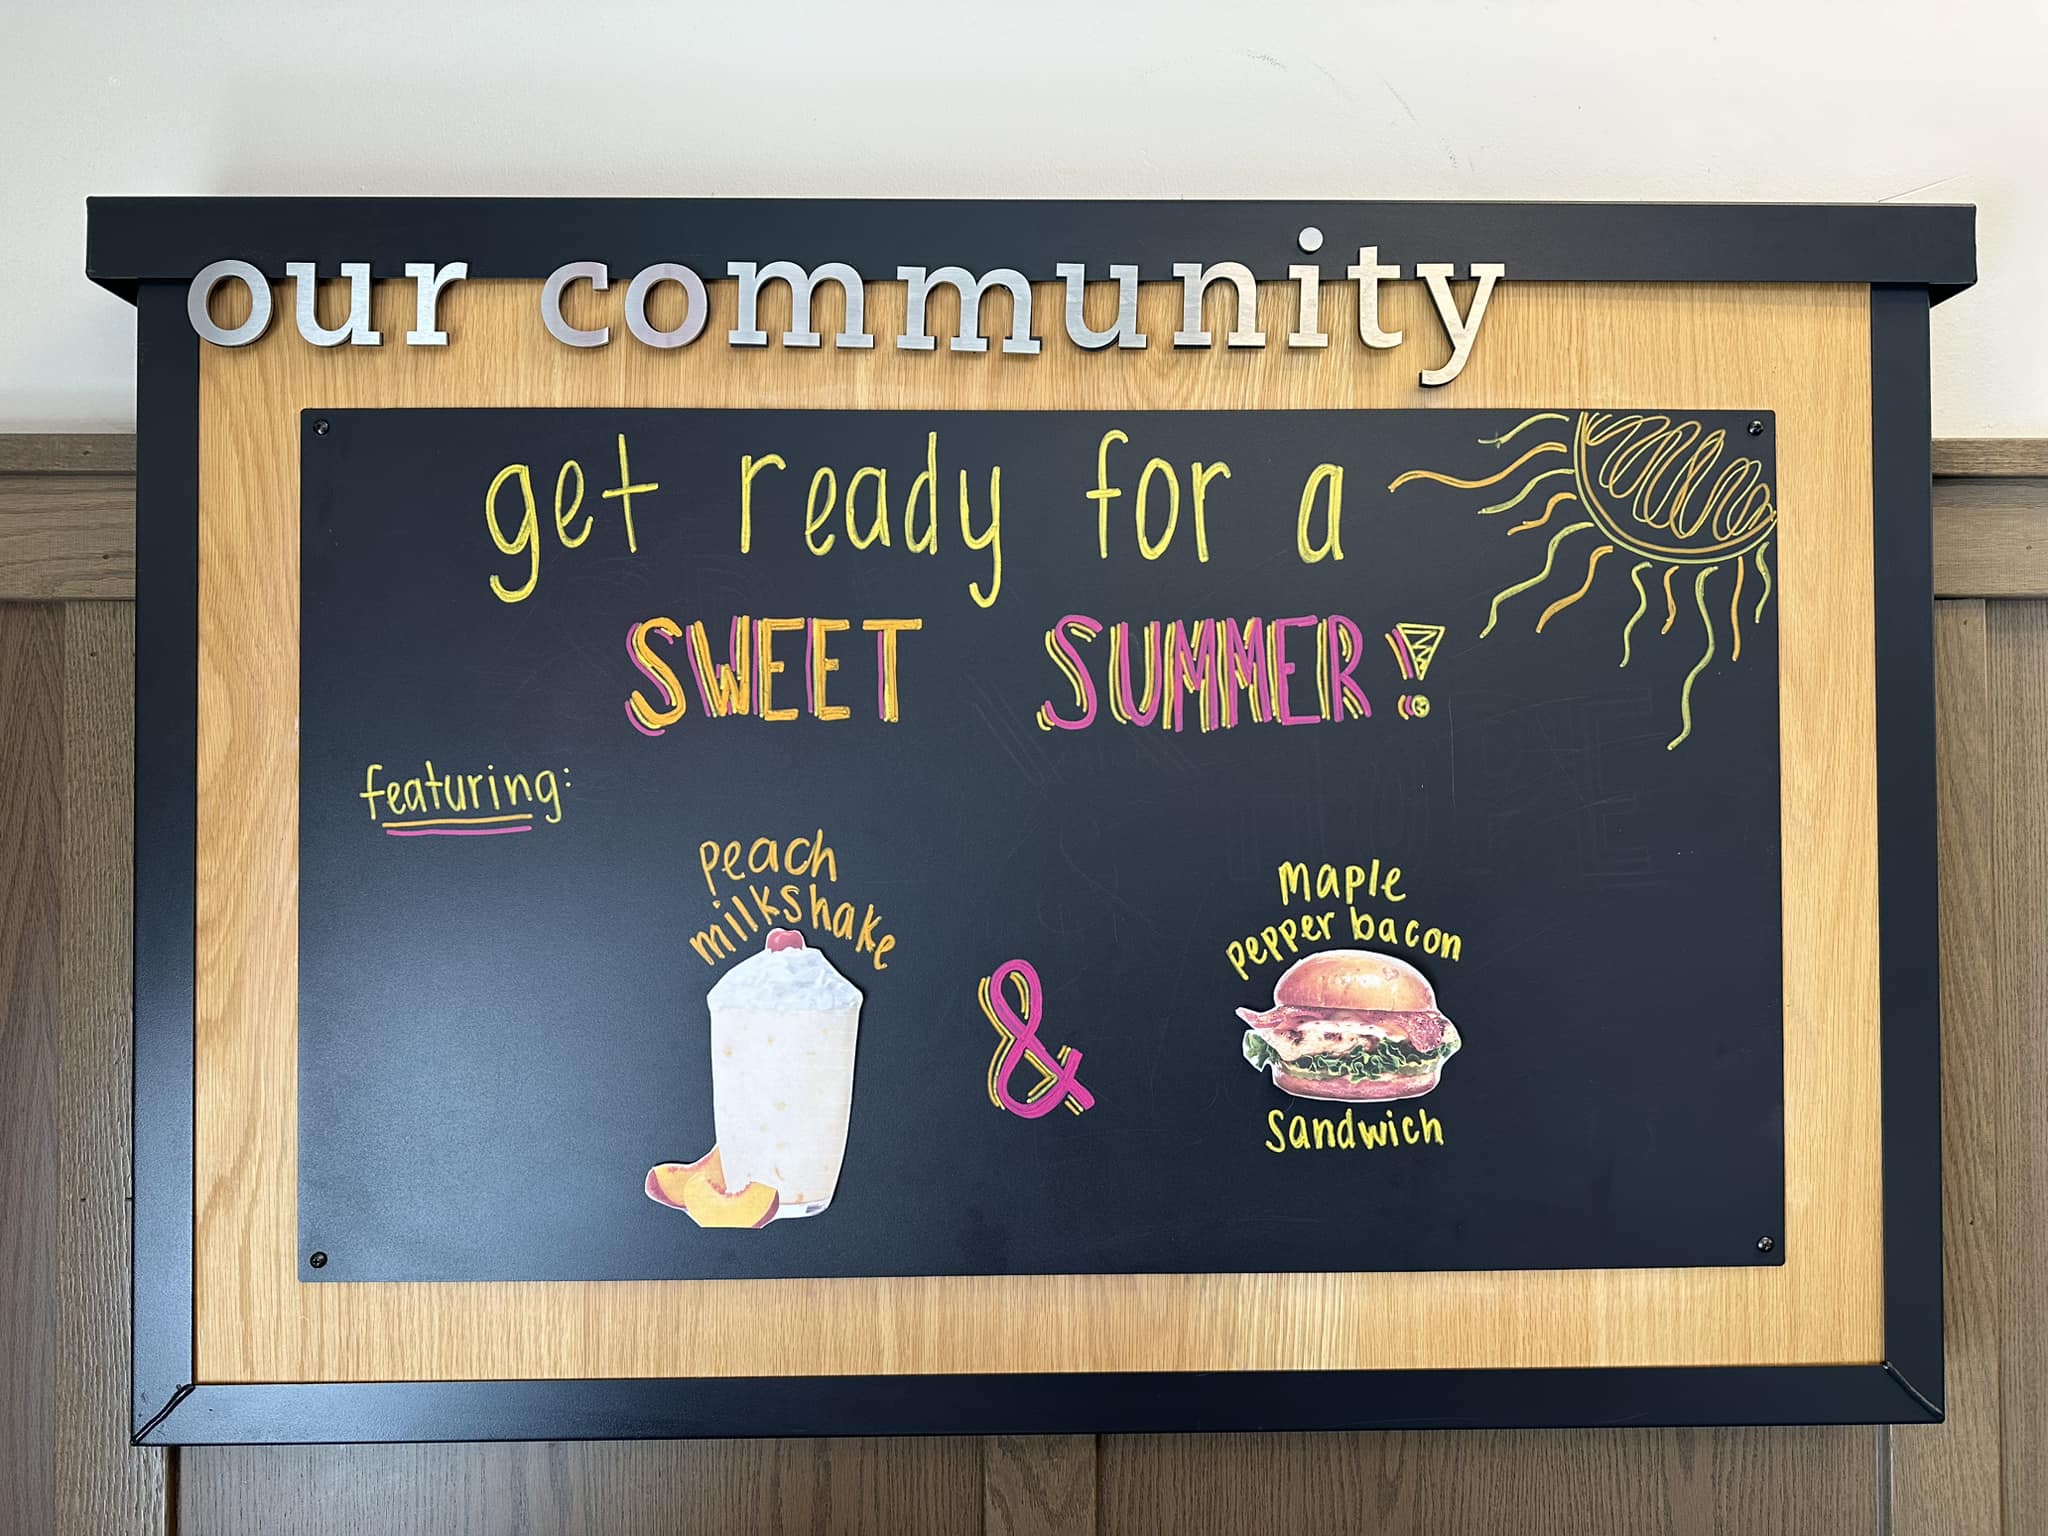 our community
get ready for a
SWEET SUMMER!
featuring:
peach
milkshake
&
maple
pepper bacon
sandwich